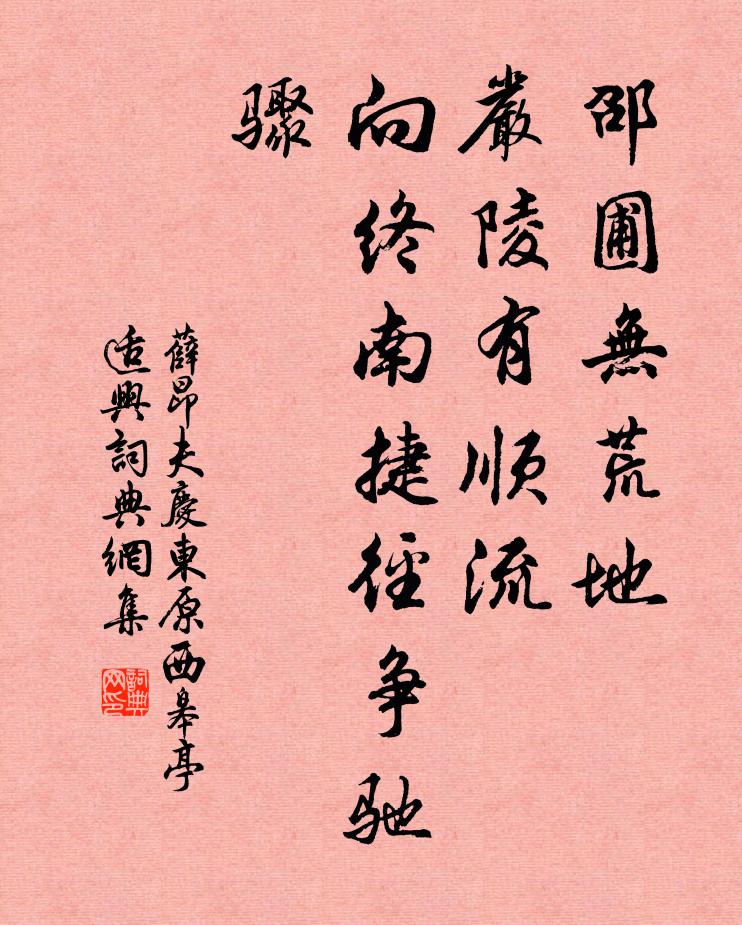 邵圃無荒地
嚴陵有順流
向終南捷徑争驰
骤
薛昂夫慶東原西皋亭
适興詞典網集
詞典
网印